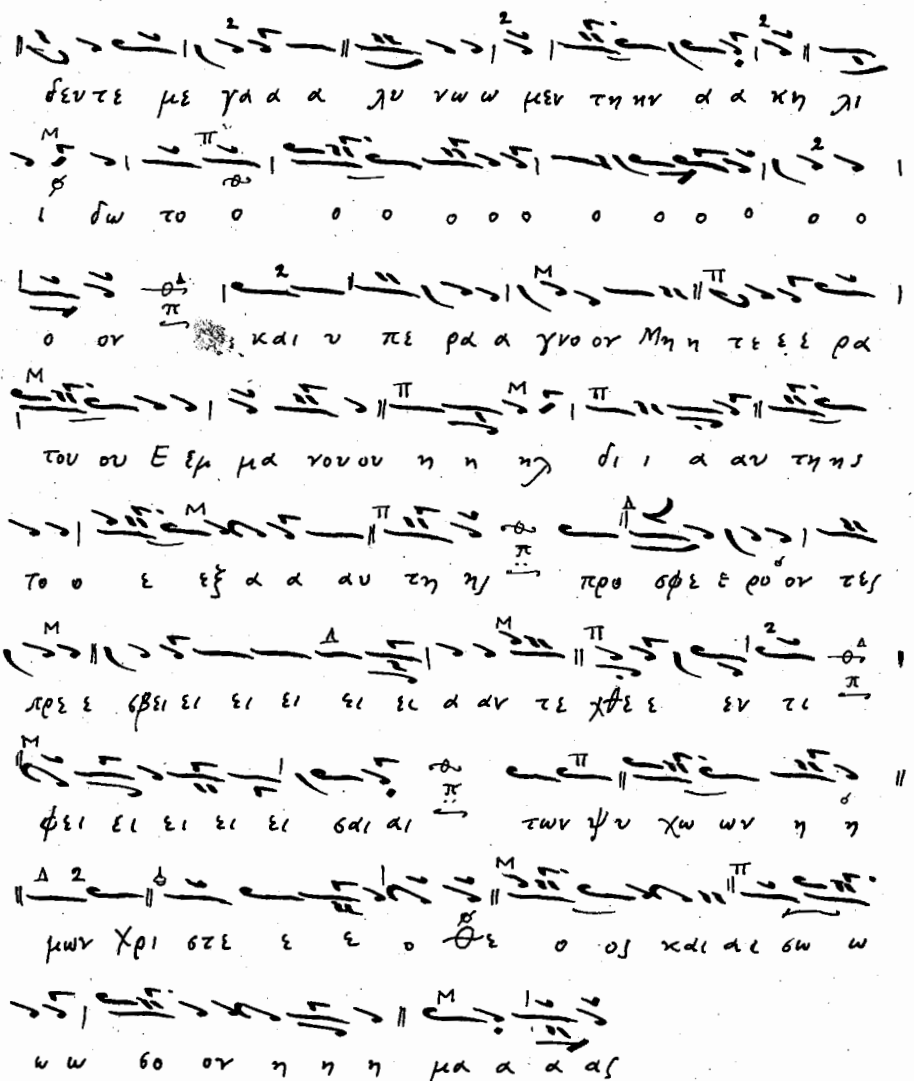 δευ τε με γα α α λυ νω ω μεν τη ην α α κη λι
ι δω το ο ο ο ο ο ο ο ο ο ο ο ο
ο ον και υ πε ρα α γνο ον Μη η τε ε ε ρα
του ου Ε εμ μα νου ου η η ηλ δι ι α αυ τη ης
το ο ε εξ α α αυ τη ης προ σφε ε ρο ον τες
πρε ε σβει ει ει ει ει ει α αν τε χθε ε εν τι
φει ει ει ει ει σαι αι των ψυ χω ων η η
μων Χρι στε ε ε ο Θε ο ος και αι σω ω
ω ω σο ον η η η μα α α ας